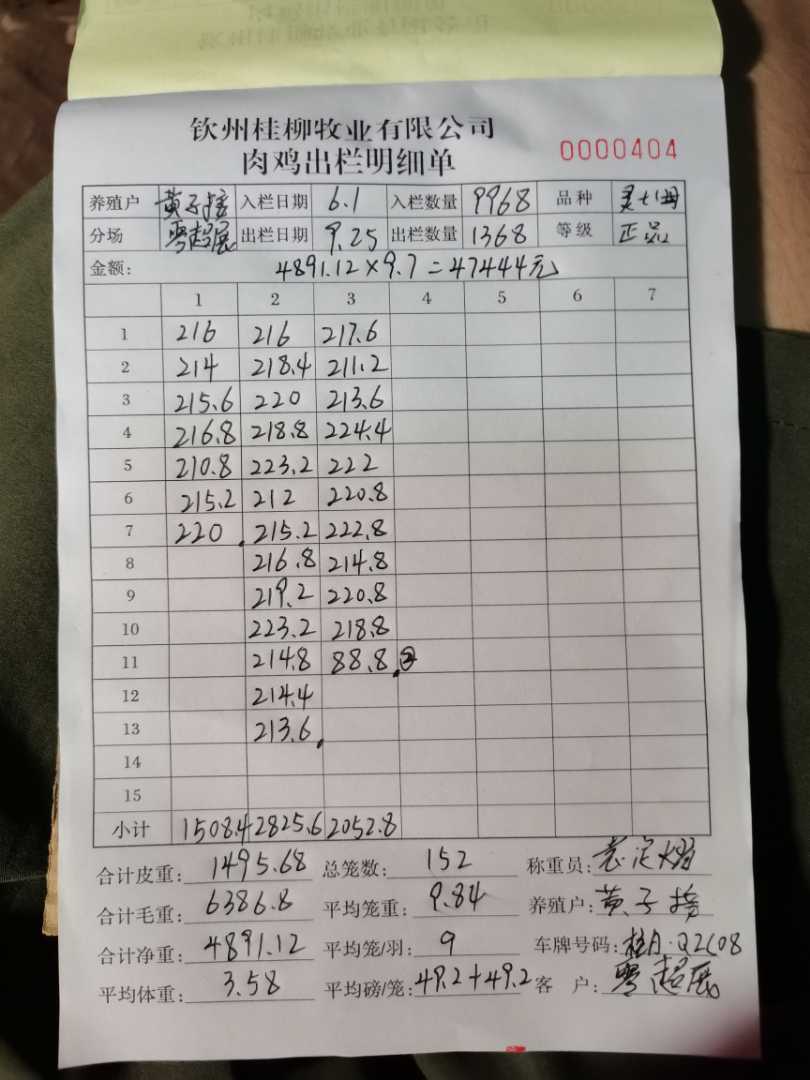 钦州桂柳牧业有限公司
肉鸡出栏明细单 0000404
养殖户 黄子 入栏日期 6.1 入栏数量 9968 品种 灵七
分场 覃超展 出栏日期 9.25 出栏数量 1368 等级 正品
金额: 4891.12×9.7=47444元
1 2 3 4 5 6 7
1 216 216 217.6
2 214 218.4 211.2
3 215.6 220 213.6
4 216.8 218.8 224.4
5 210.8 223.2 222
6 215.2 212 220.8
7 220 215.2 222.8
8 216.8 214.8
9 219.2 220.8
10 223.2 218.8
11 214.8 88.8 ②
12 214.4
13 213.6
14
15
小计 1508.4 2825.6 2052.8
合计皮重: 1495.68 总笼数: 152 称重员:
合计毛重: 6386.8 平均笼重: 9.84 养殖户: 黄子
合计净重: 4891.12 平均笼/羽: 9 车牌号码: 桂A·Q2C08
平均体重: 3.58 平均磅/笼: 49.2+49.2 客 户: 覃超展